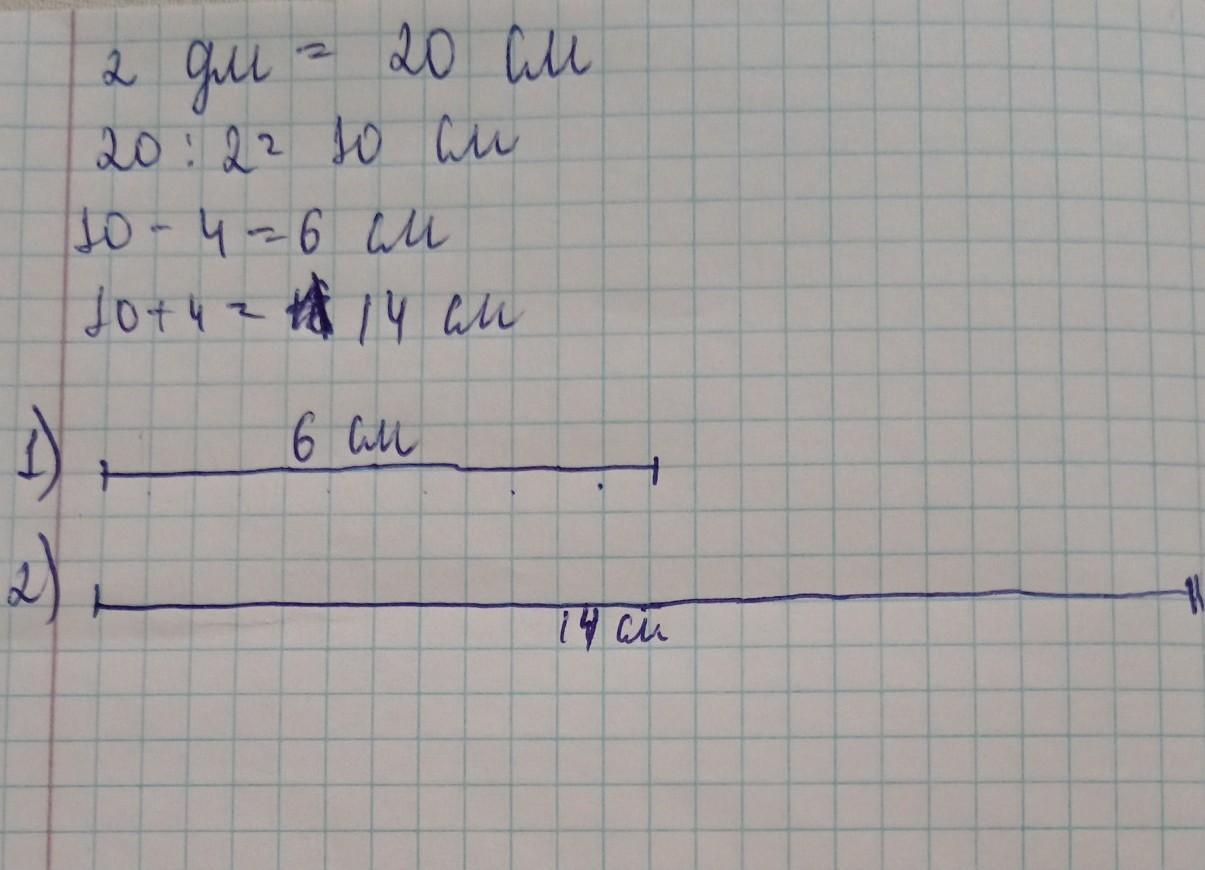 2 дм = 20 см
20 : 2 = 10 см
10 - 4 = 6 см
10 + 4 = 14 см
1) 6 см
2) 14 см